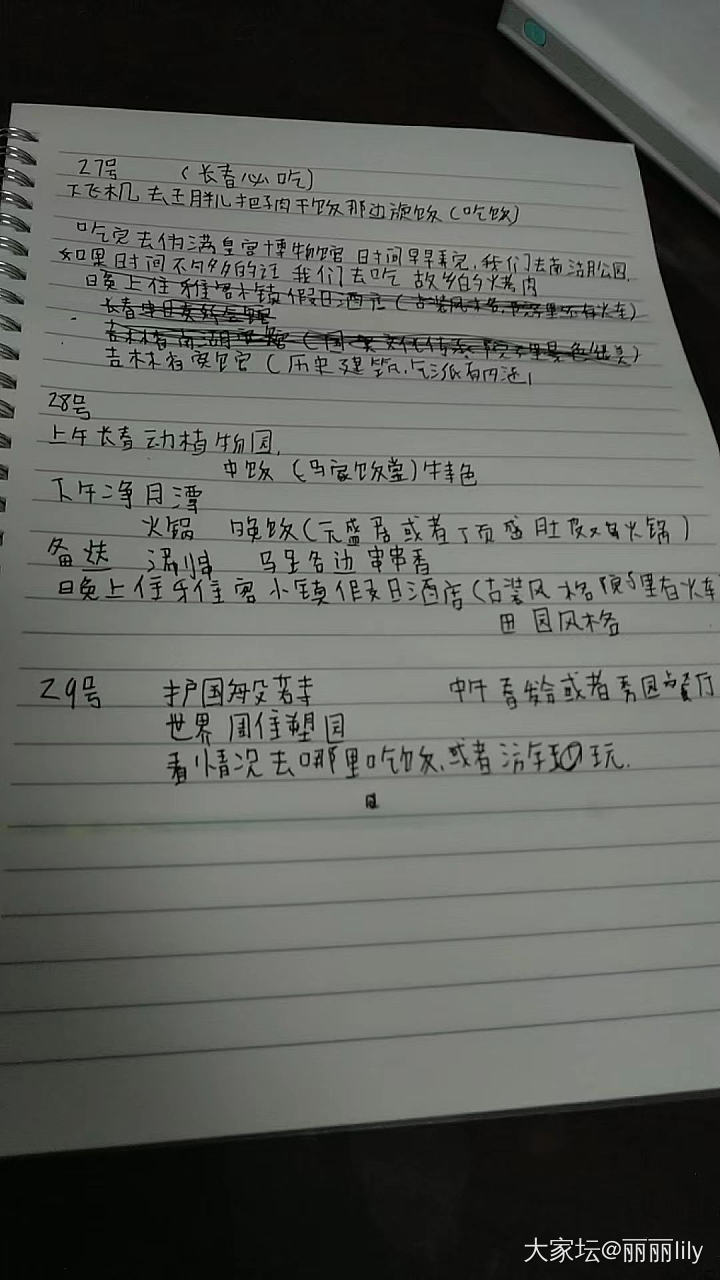 27号 (长春必吃)
下飞机去王胖儿把子肉干饭那边 饭(吃饭)
吃完去伪满皇宫博物馆 时间早弄完,我们去南湖公园.
如果时间不够的话 我们去吃 故乡的烤肉
晚上住 雅客小镇假日酒店(古装风格,院子里还有火车)
长春
吉林省南湖宾馆(国 文化传承 院子里景色优美)
吉林省宾馆(历史建筑,
28号
上午长春动植物园.
中饭(马家饭堂)特色
下午净月潭
火锅 晚饭(元盛居或者丁页盛肚皮 火锅)
备选 涮 马里名边串串香
晚上住牙住客小镇假日酒店(古装风格院子里有火车
田园风格
29号 护国般若寺 中午春发合或者秀园 餐厅
世界 周住塑园
看情况去哪里吃饭,或者 玩.